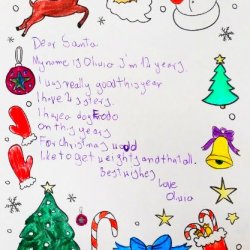 Dear Santa
My name is Olivia I'm 12 years.
I was really good this year
I have 2 sisters.
I have a dog
on this years
For christmas would
like to get weights and that all.
Best wishes
Love
Olivia